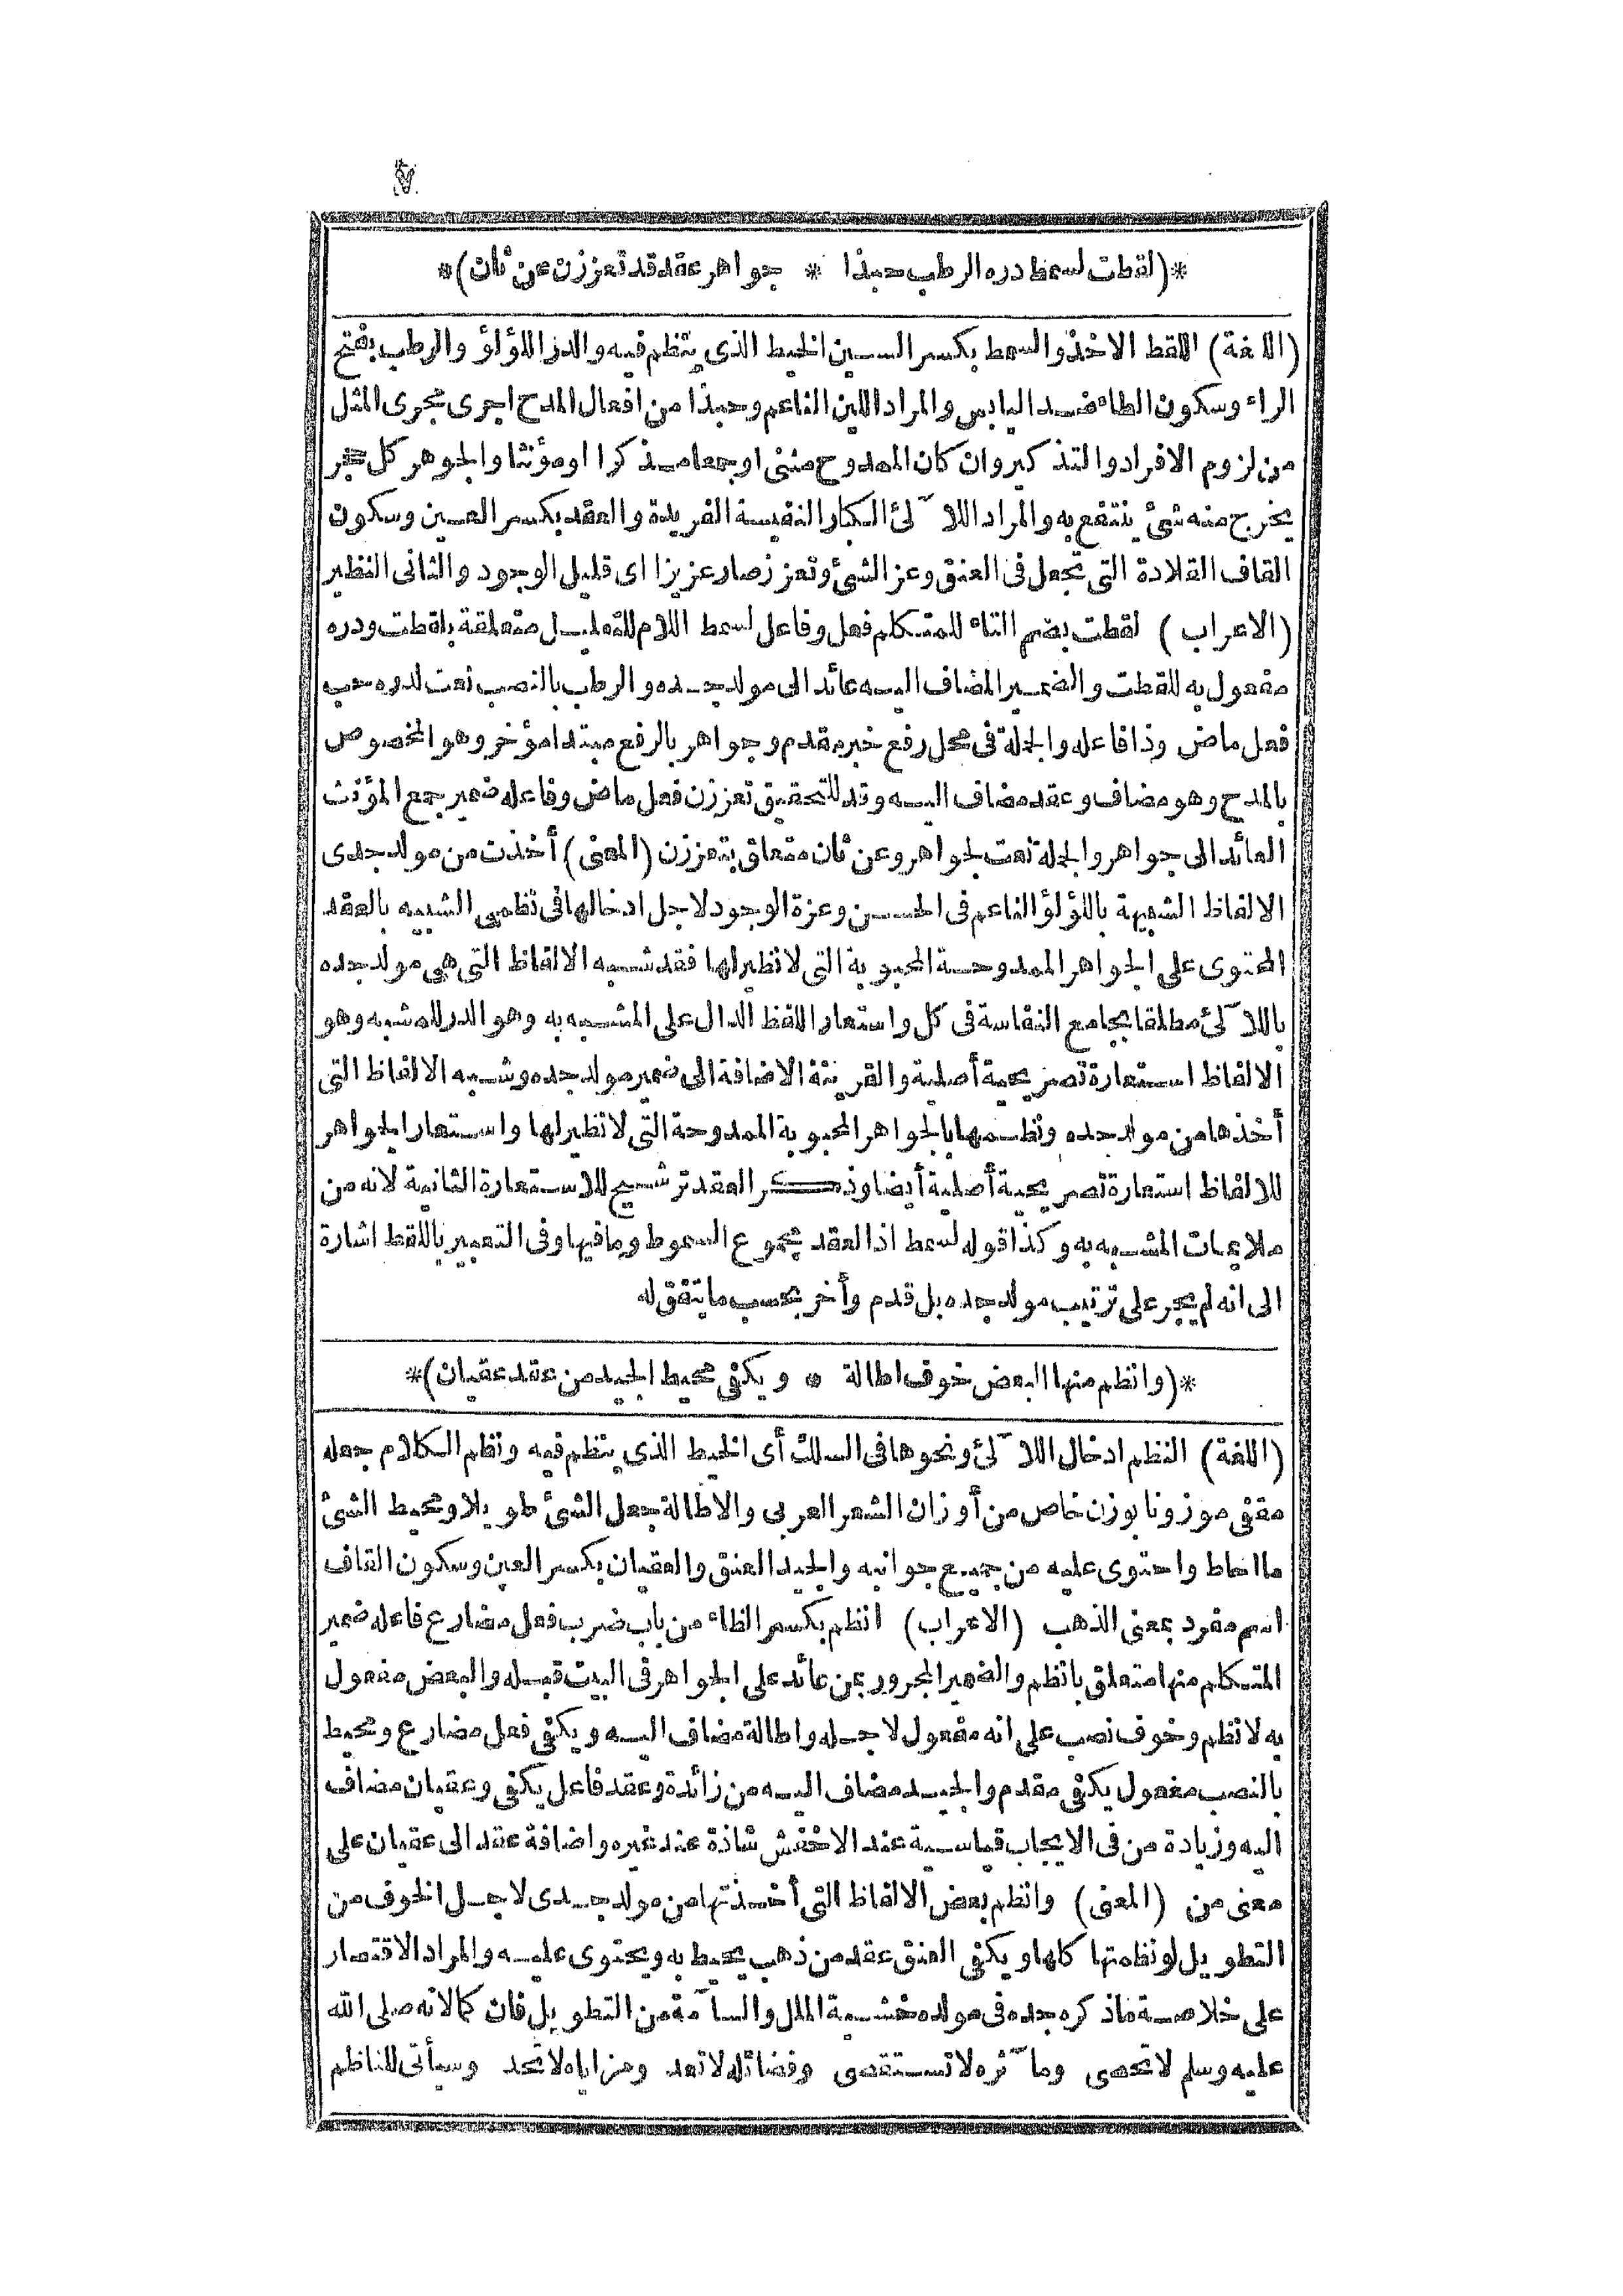 *(لقطت لسمط دره الرطب حبذا * جواهر عقد قد تعززن عن ثان)*
(اللغة) اللقط الاخذ والسمط بكسر السين الخيط الذى ينظم فيه والدر اللؤلؤ والرطب بفتح
الراء وسكون الطاء ضد اليابس والمراد اللين الناعم وحبذا من افعال المدح اجرى مجرى المثل
من لزوم الافراد والتذكير وان كان الممدوح مثنى او جمعا مذكرا او مؤنثا والجوهر كل حجر
يخرج منه شئ ينتفع به والمراد اللآلئ الكبار النفيسة الفريدة والعقد بكسر العين وسكون
القاف القلادة التى تجعل فى العنق وعز الشئ وتعزز صار عزيزا اى قليل الوجود والثانى النظير
(الاعراب) لقطت بضم التاء للمتكلم فعل وفاعل لسمط اللام للتعليل متعلقة بلقطت ودره
مفعول به للقطت والضمير المضاف اليه عائد الى مولد جده والرطب بالنصب نعت لدره حب
فعل ماض وذا فاعله والجملة فى محل رفع خبر مقدم وجواهر بالرفع مبتدا مؤخر وهو المخصوص
بالمدح وهو مضاف وعقد مضاف اليه وقد للتحقيق تعززن فعل ماض وفاعله ضمير جمع المؤنث
العائد الى جواهر والجملة نعت لجواهر وعن ثان متعلق بتعززن (المعنى) أخذت من مولد جدى
الالفاظ الشبيهة باللؤلؤ الناعم فى الحسن وعزة الوجود لاجل ادخالها فى نظمى الشبيه بالعقد
المحتوى على الجواهر الممدوحة المحبوبة التى لا نظير لها فقد شبه الالفاظ التى هى مولد جده
باللآلئ مطلقا بجامع النفاسة فى كل واستعار اللفظ الدال على المشبه به وهو الدر للمشبه وهو
الالفاظ استعارة تصريحية أصلية والقرينة الاضافة الى ضمير مولد جده وشبه الالفاظ التى
أخذها من مولد جده ونظمها بالجواهر المحبوبة الممدوحة التى لا نظير لها واستعار الجواهر
للالفاظ استعارة تصريحية أصلية أيضا وذكر العقد ترشيح للاستعارة الثانية لانه من
ملائمات المشبه به وكذا قوله لسمط اذ العقد مجموع السموط وما فيها وفى التعبير باللقط اشارة
الى انه لم يجر على ترتيب مولد جده بل قدم وأخر بحسب ما يتفق له
*(وانظم منها البعض خوف اطالة * ويكفى محيط الجيد من عقد عقيان)*
(اللغة) النظم ادخال اللآلئ ونحوها فى السلك أى الخيط الذى ينظم فيه ونظم الكلام جعله
مقفى موزونا بوزن خاص من أوزان الشعر العربى والاطالة جعل الشئ طويلا ومحيط الشئ
ما احاط واحتوى عليه من جميع جوانبه والجيد العنق والعقيان بكسر العين وسكون القاف
اسم مفرد بمعنى الذهب (الاعراب) انظم بكسر الظاء من باب ضرب فعل مضارع فاعله ضمير
المتكلم منها متعلق بانظم والضمير المجرور بمن عائد على الجواهر فى البيت قبله والبعض مفعول
به لانظم وخوف نصب على انه مفعول لاجله واطالة مضاف اليه ويكفى فعل مضارع ومحيط
بالنصب مفعول يكفى مقدم والجيد مضاف اليه من زائدة وعقد فاعل يكفى وعقيان مضاف
اليه وزيادة من فى الايجاب قياسية عند الاخفش شاذة عند غيره واضافة عقد الى عقيان على
معنى من (المعنى) وانظم بعض الالفاظ التى أخذتها من مولد جدى لاجل الخوف من
التطويل لو نظمتها كلها ويكفى العنق عقد من ذهب يحيط به ويحتوى عليه والمراد الاقتصار
على خلاصة ما ذكره جده فى مولده خشية الملل والسآمة من التطويل فان كمالاته صلى الله
عليه وسلم لا تحصى ومآثره لا تستقصى وفضائله لا تعد ومزاياه لا تحد وسيأتى للناظم